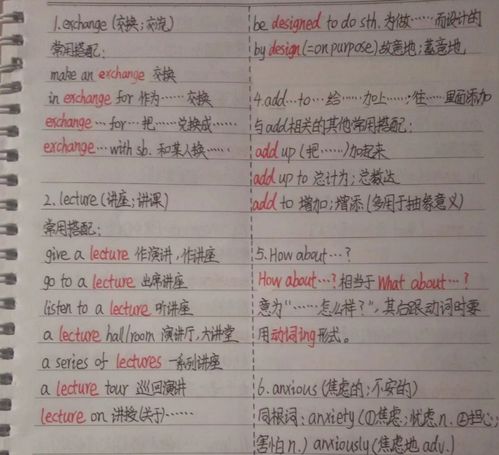 1. exchange (交换;交流)
常用搭配:
make an exchange 交换
in exchange for 作为……交换
exchange…for…把……兑换成……
exchange…with sb. 和某人换……
2. lecture (讲座;讲课)
常用搭配:
give a lecture 作演讲,作讲座
go to a lecture 出席讲座
listen to a lecture 听讲座
a lecture hall/room 演讲厅,大讲堂
a series of lectures 一系列讲座
a lecture tour 巡回演讲
lecture on 讲授(关于)……
be designed to do sth. 为做……而设计的
by design (=on purpose) 故意地;蓄意地
4. add…to…给……加上……;往……里面添加
与add相关的其他常用搭配:
add up (把……)加起来
add up to 总计为;总数达
add to 增加;增添(多用于抽象意义)
5. How about…?
How about…? 相当于 What about…?
意为“……怎么样?”,其后跟动词时要
用动词ing形式。
6. anxious (焦虑的;不安的)
同根词:anxiety (①焦虑;忧虑n. ②担心;
害怕n.) anxiously (焦虑地 adv.)